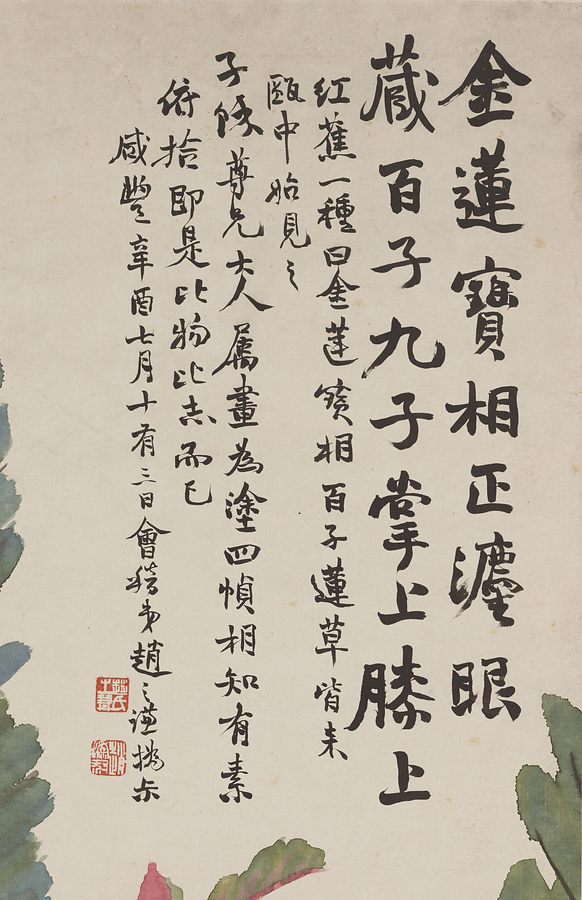 金蓮寶相正灋眼
藏百子九子掌上膝上
紅蕉一種曰金蓮寶相百子蓮草皆未
甌中始見之
子復尊兄大人屬畫為塗四幀相知有素
俯拾即是比物比志而已
咸豐辛酉七月十有三日會稽弟趙之謙撝尗